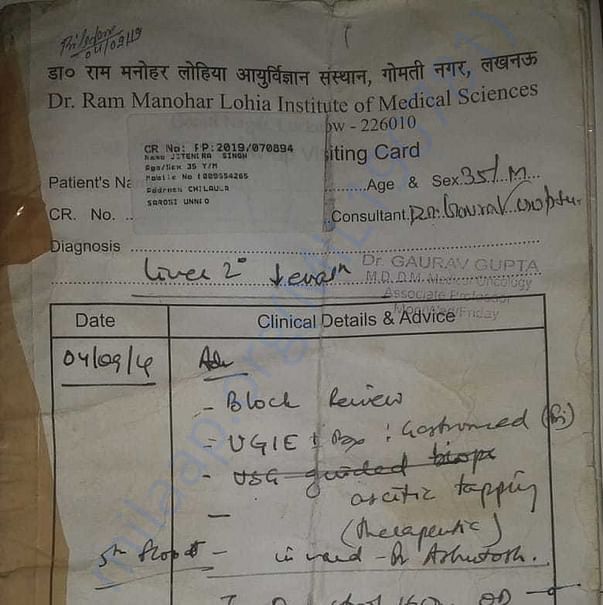 04/09/19
डा० राम मनोहर लोहिया आयुर्विज्ञान संस्थान, गोमती नगर, लखनऊ
Dr. Ram Manohar Lohia Institute of Medical Sciences
ow - 226010
CR No: PP:2019/070894
iting Card
Name JITENDRA SINGH
Age/Sex 35 Y/M
Mobile No
Address CHILAULA
SAROSI UNNAO
Patient's Na
Age & Sex. 35/M
CR. No. ..
Consultant. Dr. Gaurav Gupta
Diagnosis
Liver 2°
Dr. GAURAV GUPTA
M.D., D.M. Medical Oncology
Associate Professor
Mon/Wed/Friday
Date
Clinical Details & Advice
04/09/19
Adv
- Block Review
- UGIE : Gastromed
- USG guided biops
ascitic tapping
(therapeutic)
5th floor - in ward - Dr Ashutosh.
milaap.org